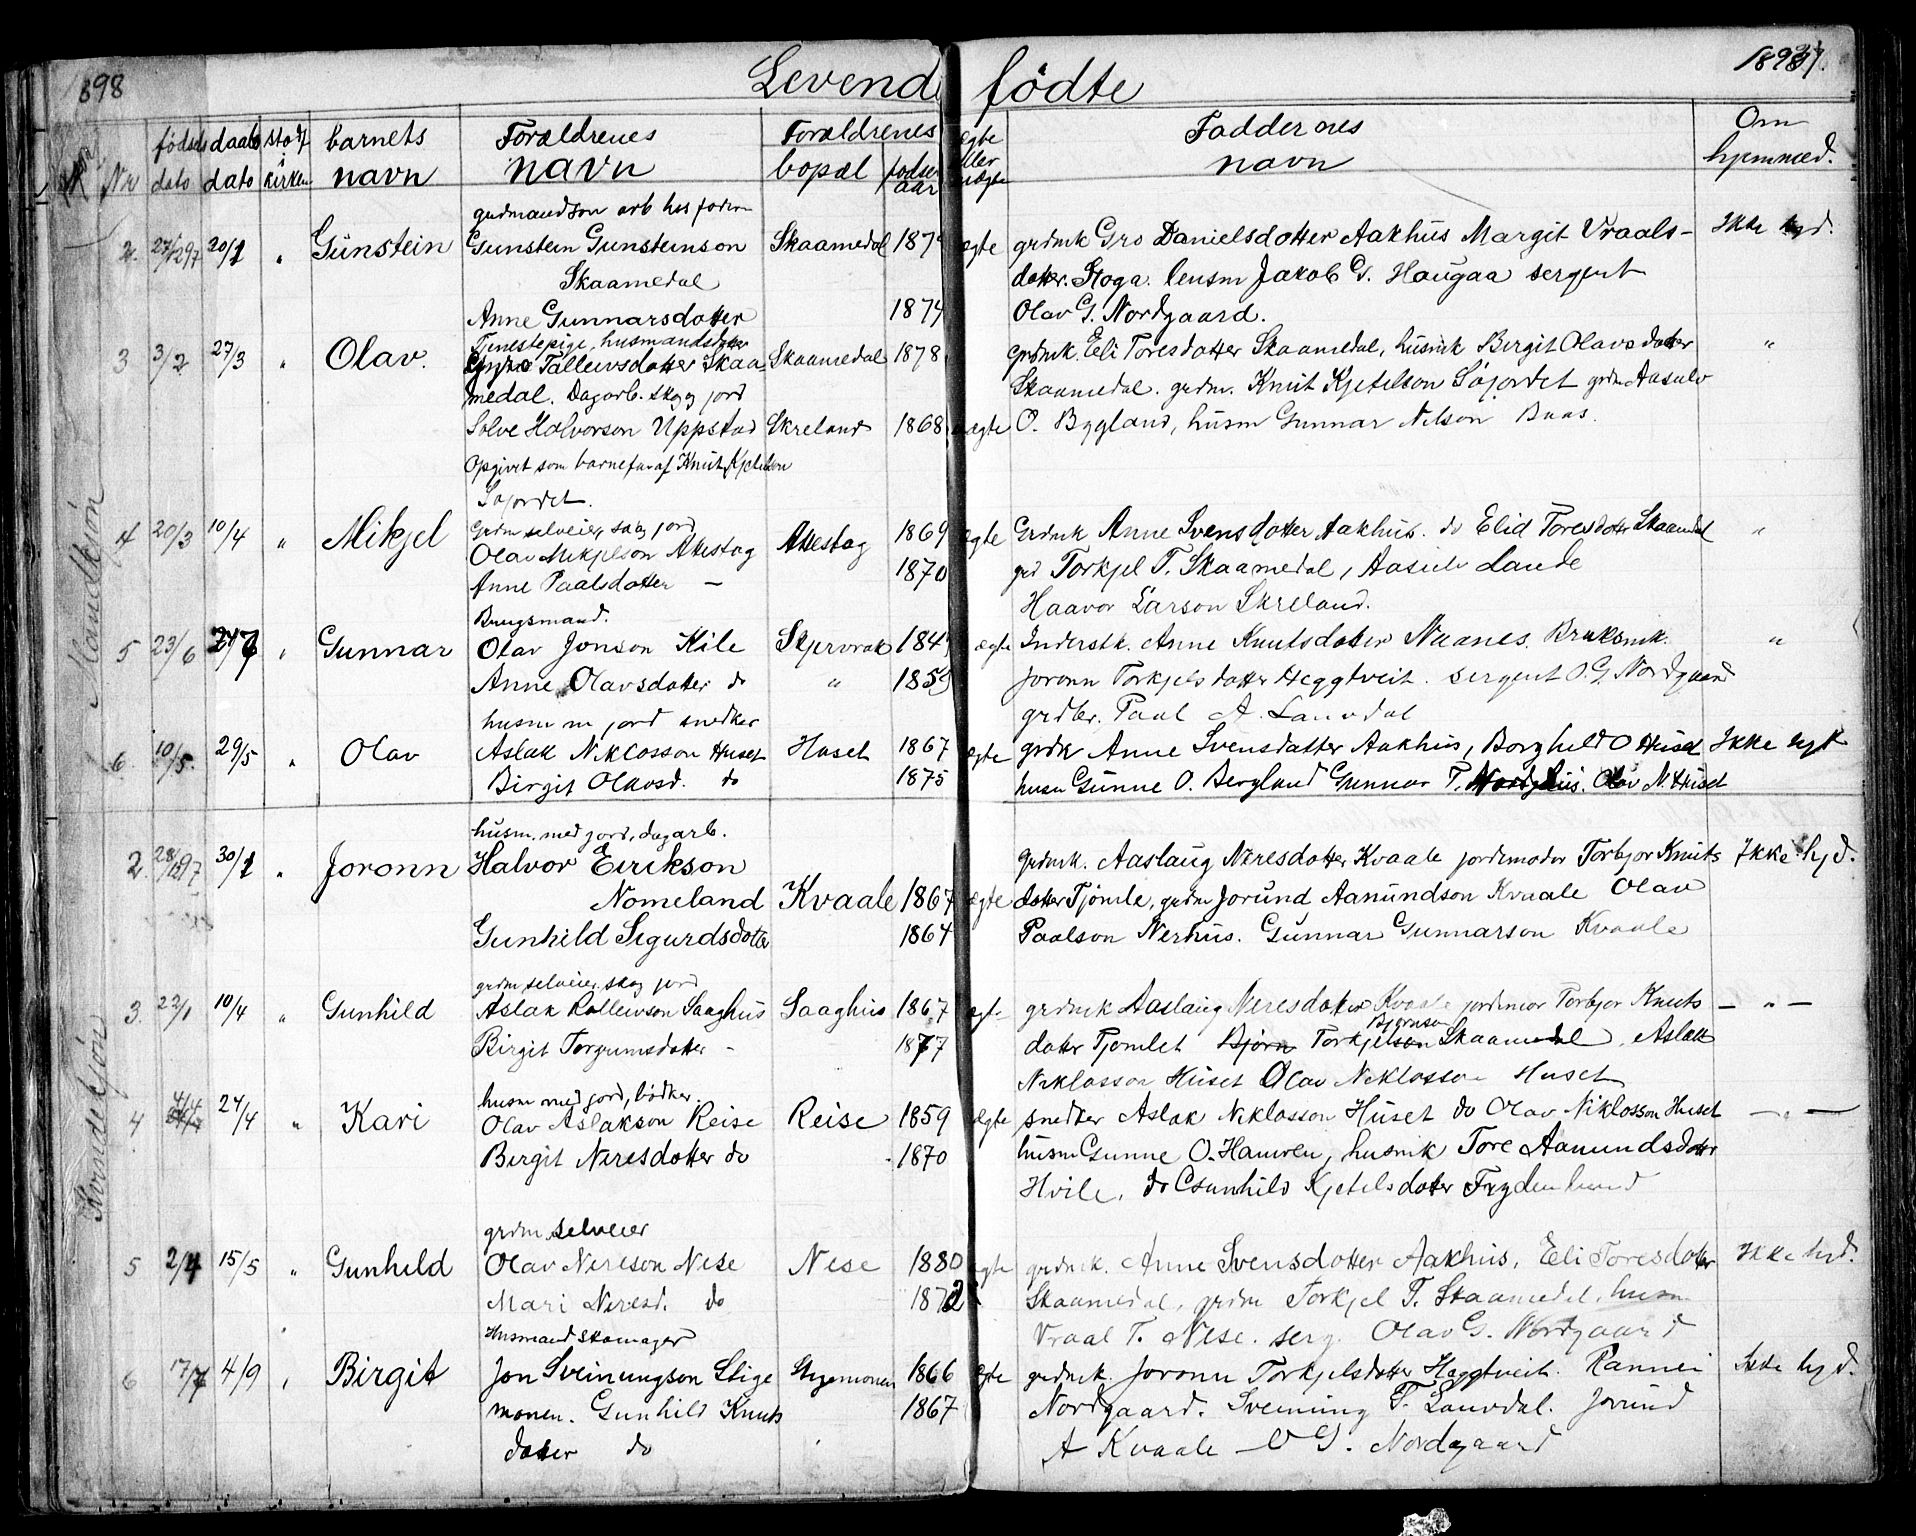 898 Levende fødte 1898
Nr
fødsels dato
daabs dato
stad i kirken
barnets navn
Forældrenes navn
Forældrenes bopæl
fødsels aar
ægte eller uægte
Faddernes navn
Om hjemmed.
Mandkjøn
gardmandsøn arb hos faderen
2. 20/1 " Gunstein Gunstein Gunsteinson Skaamedal 187 ægte grdmk Gro Danielsdotter Aakhus Margit Vraals- Ikke hjd.
Skaamedal dotter. Stoga. lensm Jakob G. Haugaa sergent
Anne Gunnarsdotter 1874 Olav G. Nordgaard.
Tjenestepige, husmandsdatter
3 3/2 27/3 " Olav. Gyro Talleivsdotter Skaa- Skaamedal 1878 grdmk. Eli Toresdotter Skaamedal, husmk Birgit Olavsdotter "
medal. Dagarb. skog jord Skaamedal. grdm. Knut Kjetelson Søjordet grdm Aasulv
Solve Halvorson Uppstad Skreland 1868 uægte O. Bygland, husm Gunnar Nelson Baas.
Opgivet som barnefar af Knut Kjetelson
Søjordet.
Grdm selveier, skog jord
4 20/3 10/4 " Mikjel Olav Mikjelson Akestog Akestog 1869 ægte Grdmk Anne Svensdotter Aakhus. do Elid Toresdotter Skaamdal "
Anne Paalsdotter — 1870 grd Torkjel T. Skaamedal, Aasulv Lande
Haavor Larson Skreland.
Brugsmand.
5 23/6 24/7 " Gunnar Olav Jonson Kile Skjervrak 184 ægte Inderstk. Anne Knutsdotter Naanes. Bruksmk. "
Anne Olavsdotter do " 1859 Joronn Torkjelsdotter Heggtveit. sergent O. G. Nordgaard
grdbr. Paal A. Lauvdal
husm m jord snedker
6. 10/5. 29/5 " Olav Aslak Niklosson Huset Huset 1867 ægte grdk Anne Svensdatter Aakhus, Borghild O Huset Ikke hjd
Birgit Olavsd. do 1875 husm Gunne O. Bergland Gunnar T. Nordghus. Olav N. Huset
Kvindekjøn
husm. med jord, dagarb.
2 28/1297 30/1 " Joronn Halvor Eirikson grdmk. Aaslaug Neresdotter Kvaale jordemoder Torbjor Knuts Ikke hjd.
Nomeland Kvaale 1867 ægte dotter Tjomle, grdm Jorund Aanundson Kvaale Olav
Gunhild Sigurdsdotter 1864 Paalson Nerhus. Gunnar Gunnarson Kvaale
grdm selveier, skog jord
3. 22/1 10/4 " Gunhild Aslak Rolleivson Saaghus Saaghus 1867 ægt- grdmk Aaslaug Neresdotter Kvaale jordemor Torbjor Knuts — " —
Birgit Torgrumsdotter - 1877 datter Tjomlet Bjørn Torkjelson Bjørnson Skaamedal. Aslak
Niklosson Huset Olav Niklosson Huset
husm med jord, bødker.
4 4/4 24/4 " Kari Olav Aslakson Reise Reise 1859 ægte snedker Aslak Niklosson Huset do Olav Niklosson Huset — " —
Birgit Neresdotter do 1870 husm Gunne O. Hamren, husmk Tore Aanundsdotter
Hvile, do Gunhild Kjetelsdotter Frydenlund
grdm selveier
5 2/4 15/5 " Gunhild Olav Nereson Nese Nese 1880 ægte grdmk. Anne Svensdotter Aakhus, Eli Toresdotter Ikke hjd.
Mari Neresd. do 1872 Skaamedal, grdm Torkjel T. Skaamedal, husm
Vraal T. Nese. serg. Olav G. Nordgaard
Husmand skomager
6 17/7 4/9 " Birgit Jon Sveinungson Stige Stigemonen 1866 ægte grdmk. Joronn Torkjelsdotter Heggtveit. Rannei Ikke hjd.
monen. Gunhild Knuts 1867 Nordgaard. Sveinung T. Lauvdal. Jorund
datter do A Kvaale — O G. Nordgaard